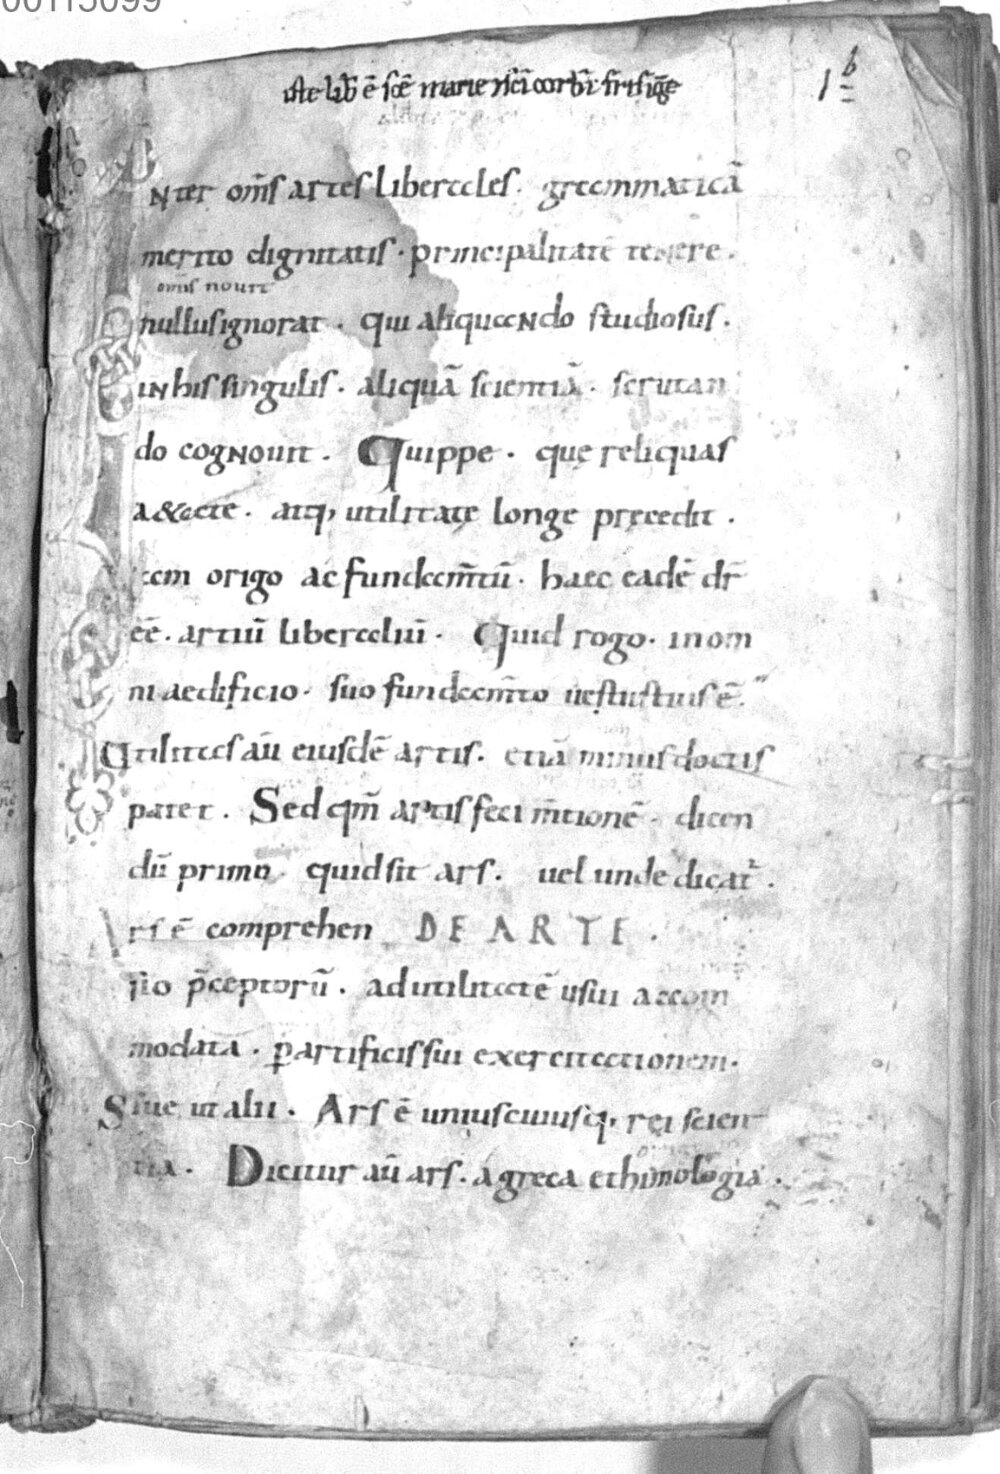 00115099
iste lib̄ ē scē marie ⁊ sc̄i corb̄i frisīḡe
1 b
INter om̄s artes liberales. grammaticā
merito dignitatis. principalitatē tenere.
om̄s nouit
nullus ignorat. qui aliquando studiosus.
in his singulis. aliquā scientiā. scrutan
do cognouit. Quippe. quę reliquas
aetate. atq; utilitatę longe pręcedit.
am origo ac fundam̄tū. haec eadē dr̄
eē. artiū liberaliū. Quid rogo. in om
ni aedificio. suo fundam̄to uęstustius ē.
Utilitas aū eiusdē artis. etiā minus doctis
patet. Sed qm̄ artis feci m̄tionē. dicen
dū primo. quid sit ars. uel unde dicat᷑.
Ars ē comprehen DE ARTE.
sio p̄ceptorū. ad utilitatē usui accom
modata. p̱ artificis sui exercitationem.
Siue, ut alii. Ars ē uniuscuiusq; rei scien
tia. Dicitur aū ars. a greca ethimologia.